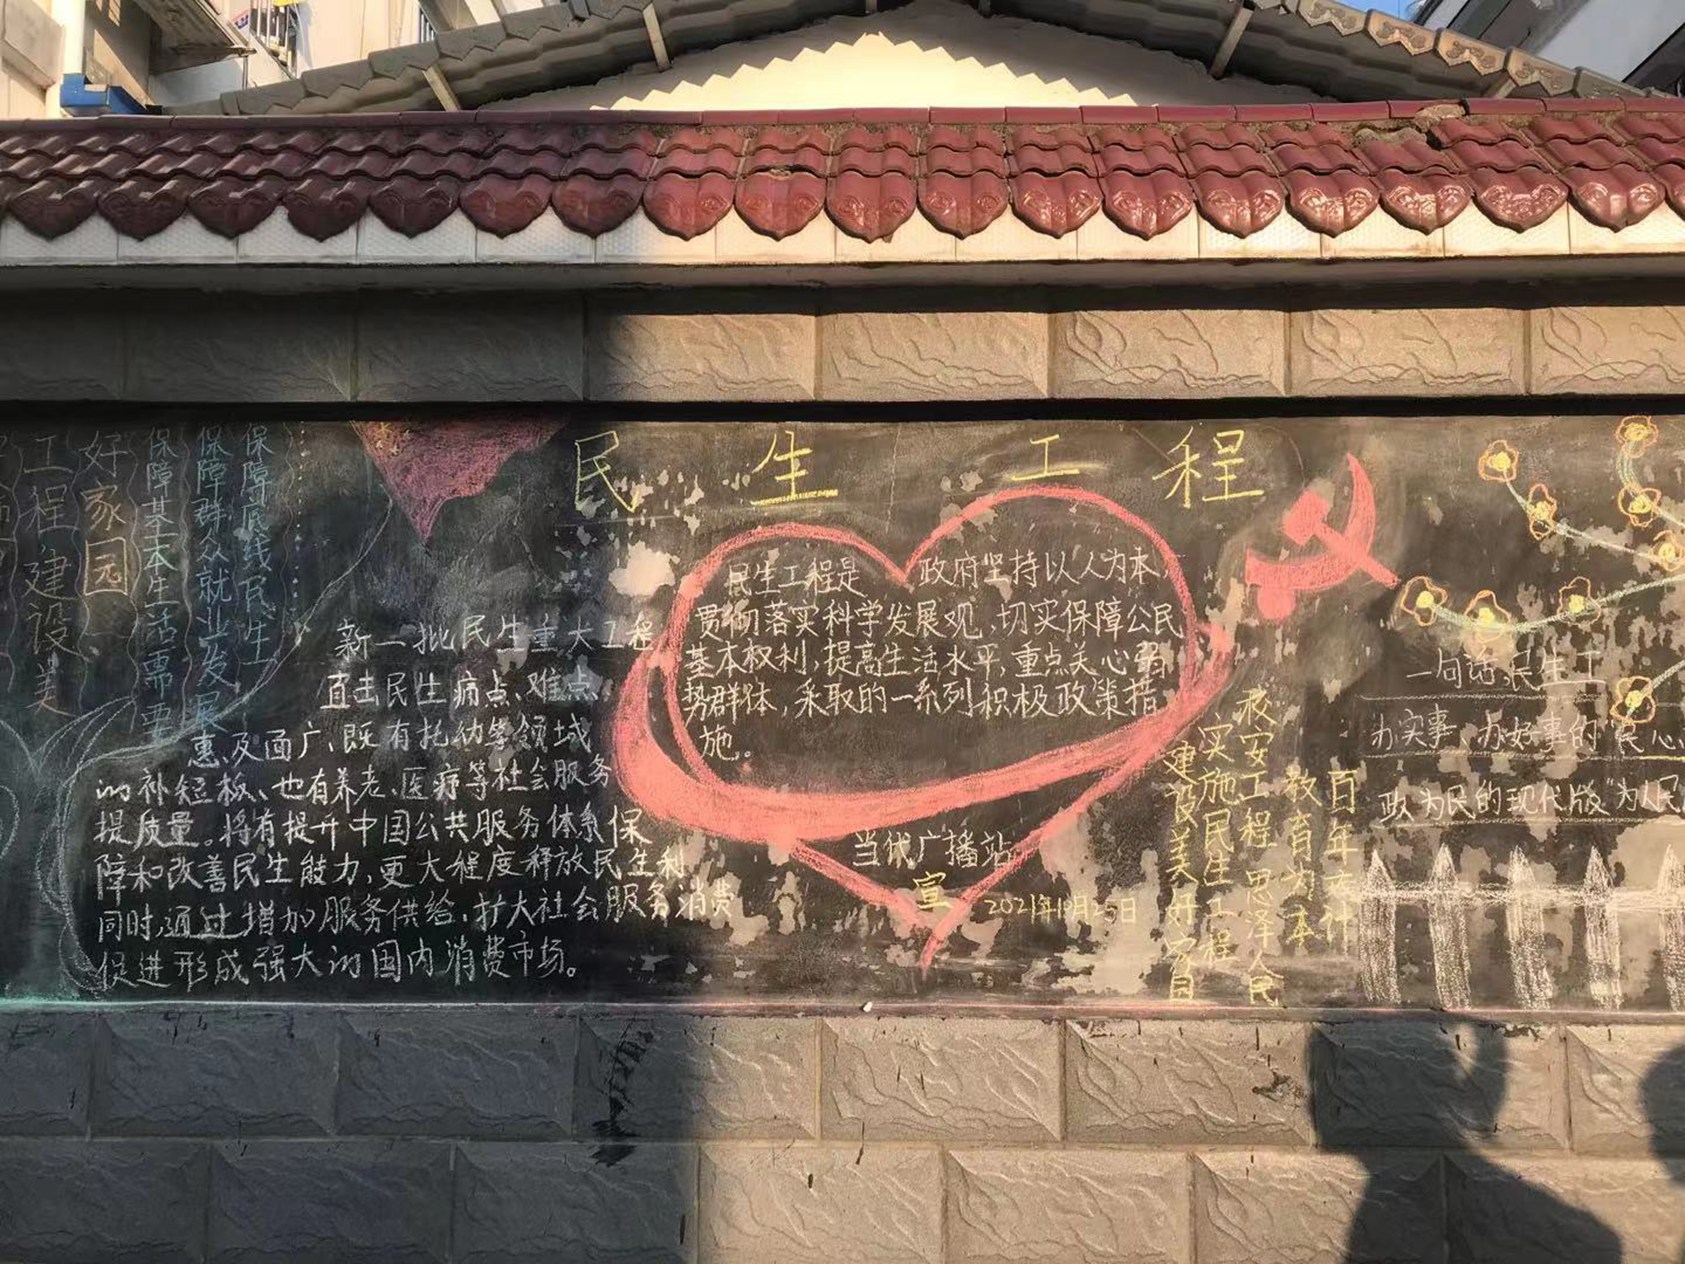 民生工程
工程建设美
好家园
保障基本生活需要
保障群众就业发展
保障底线民生
新一批民生重大工程
直击民生痛点、难点
惠及面广、既有托幼等领域
的补短板、也有养老、医疗等社会服务
提质量。将有提升中国公共服务体系保
障和改善民生能力,更大程度释放民生利
同时,通过增加服务供给、扩大社会服务消费
促进形成强大的国内消费市场。
民生工程是政府坚持以人为本、
贯彻落实科学发展观,切实保障公民
基本权利,提高生活水平,重点关心弱
势群体,采取的一系列积极政策措
施。
当代广播站
宣
2021年10月25日
百年大计
教育为本
校安工程恩泽人民
实施民生工程
建设美好家园
一句话,民生工
办实事、办好事的“民心
政为民的现代版“为人民